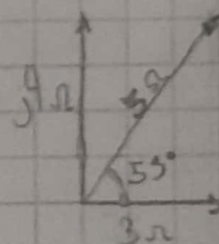 j4 Ω
5 Ω
53°
3 Ω